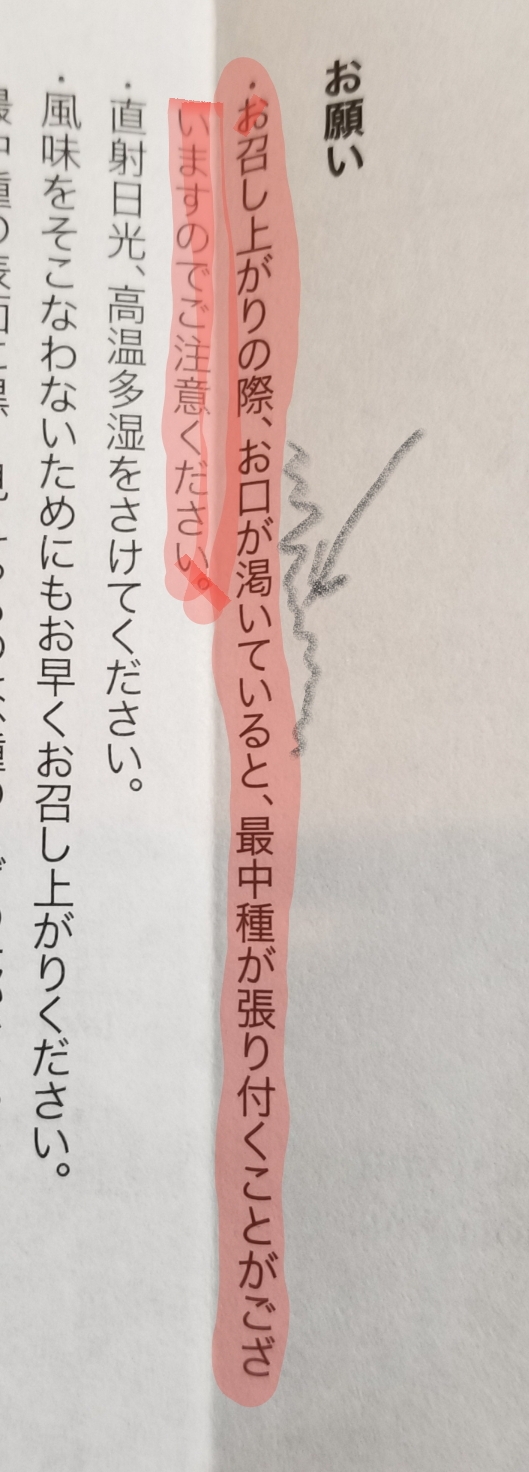 お願い
・お召し上がりの際、お口が渇いていると、最中種が張り付くことがござ
いますのでご注意ください。
・直射日光、高温多湿をさけてください。
・風味をそこなわないためにもお早くお召し上がりください。